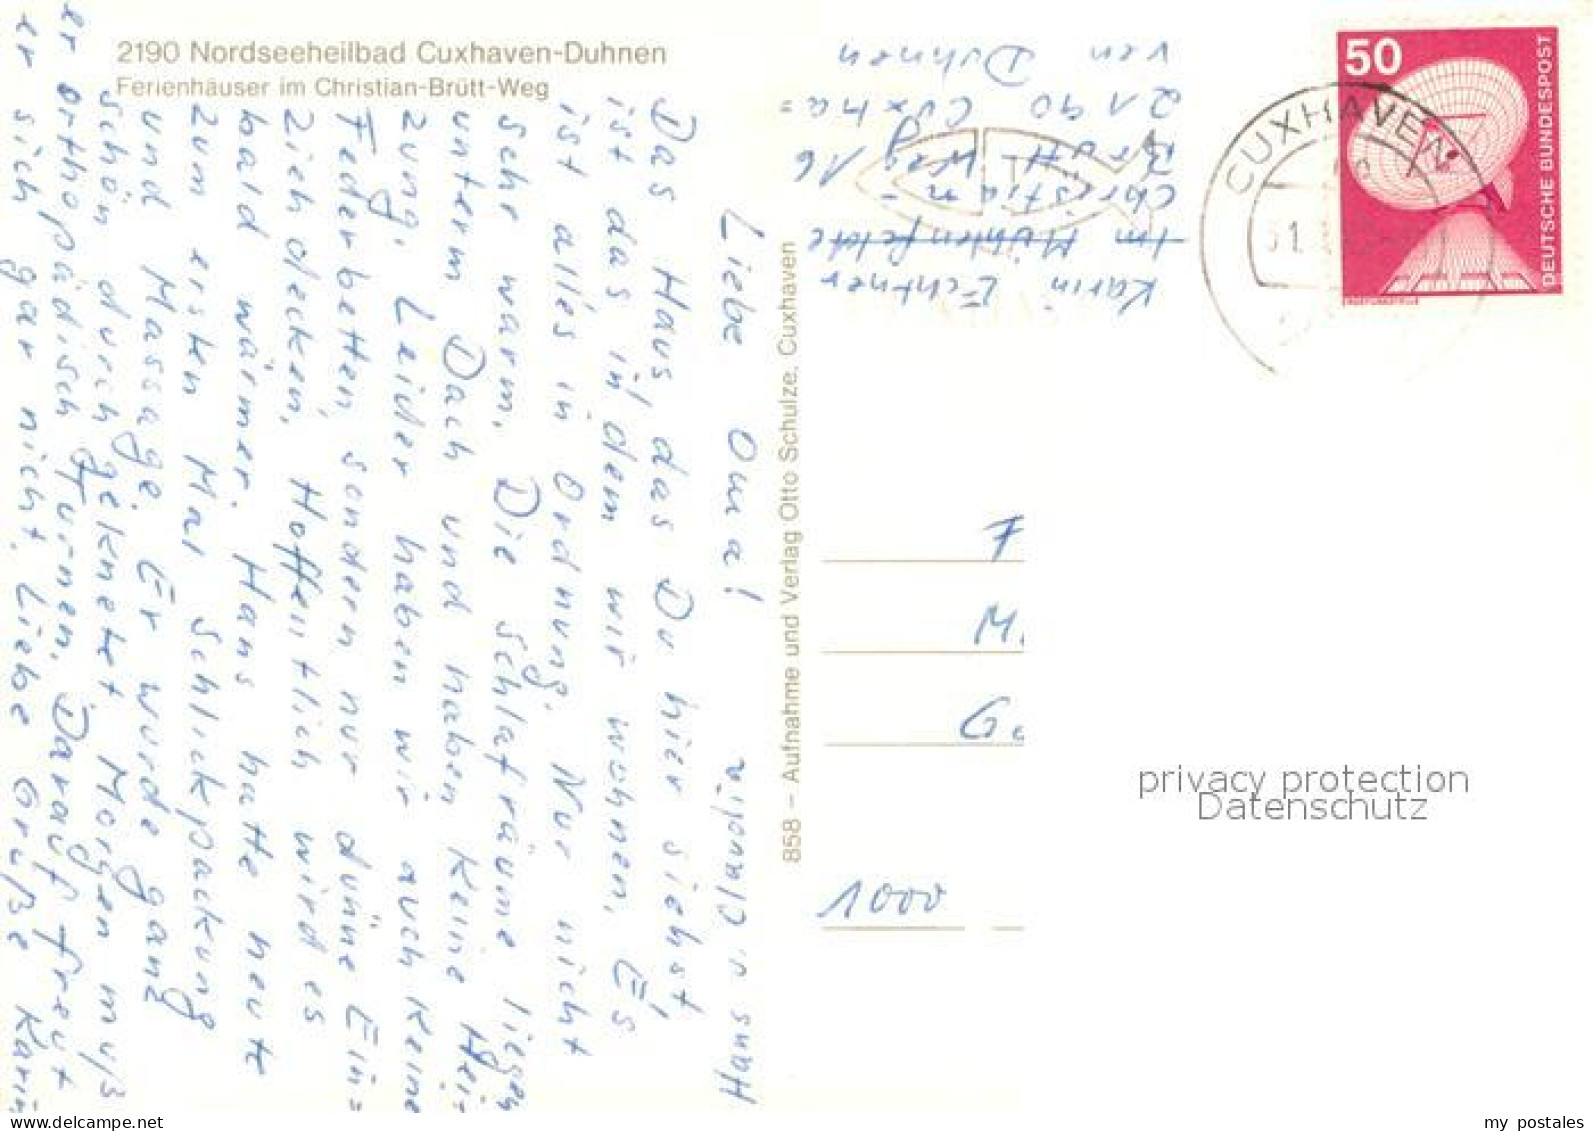 2190 Nordseeheilbad Cuxhaven-Duhnen
Ferienhäuser im Christian-Brütt-Weg
Liebe Oma!
Das Haus, das Du hier siehst,
ist das in dem wir wohnen. Es
ist alles in Ordnung. Nur nicht
sehr warm. Die Schlafräume liegen
unterm Dach und haben keine Hei=
zung. Leider haben wir auch keine
Federbetten, sondern nur dünne Ein=
ziehdecken. Hoffentlich wird es
bald wärmer. Hans hatte heute
zum ersten Mal Schlickpackung
und Massage. Er wurde ganz
schön durchgeknetet. Morgen muß
er orthopädisch turnen. Darauf freut
er sich gar nicht. Liebe Grüße Karin
Hans u. Claudia
858 – Aufnahme und Verlag Otto Schulze, Cuxhaven
Karin Echtner
Im Mühlenfelde
Christian-
Brütt Weg 16
2190 Cuxha=
ven Duhnen
50
DEUTSCHE BUNDESPOST
CUXHAVEN
F
M
Ga
1000
privacy protection
Datenschutz
my postales